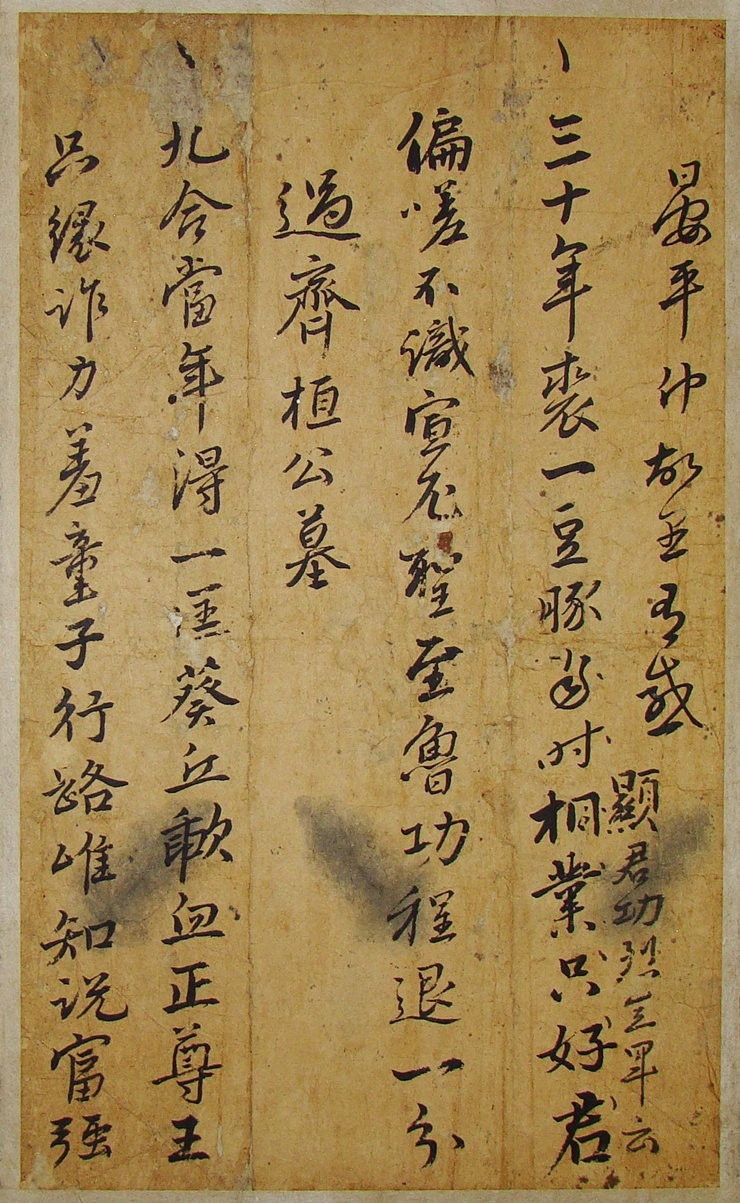 晏平仲故里有感
顯君功烈卑云
三十年裘一豆豚時相業只好君
偏嗟不識宣尼聖至魯功程退一分
過齊桓公墓
九合當年得一匡葵丘歃血正尊王
只緣詐力羞童子行路唯知說富強